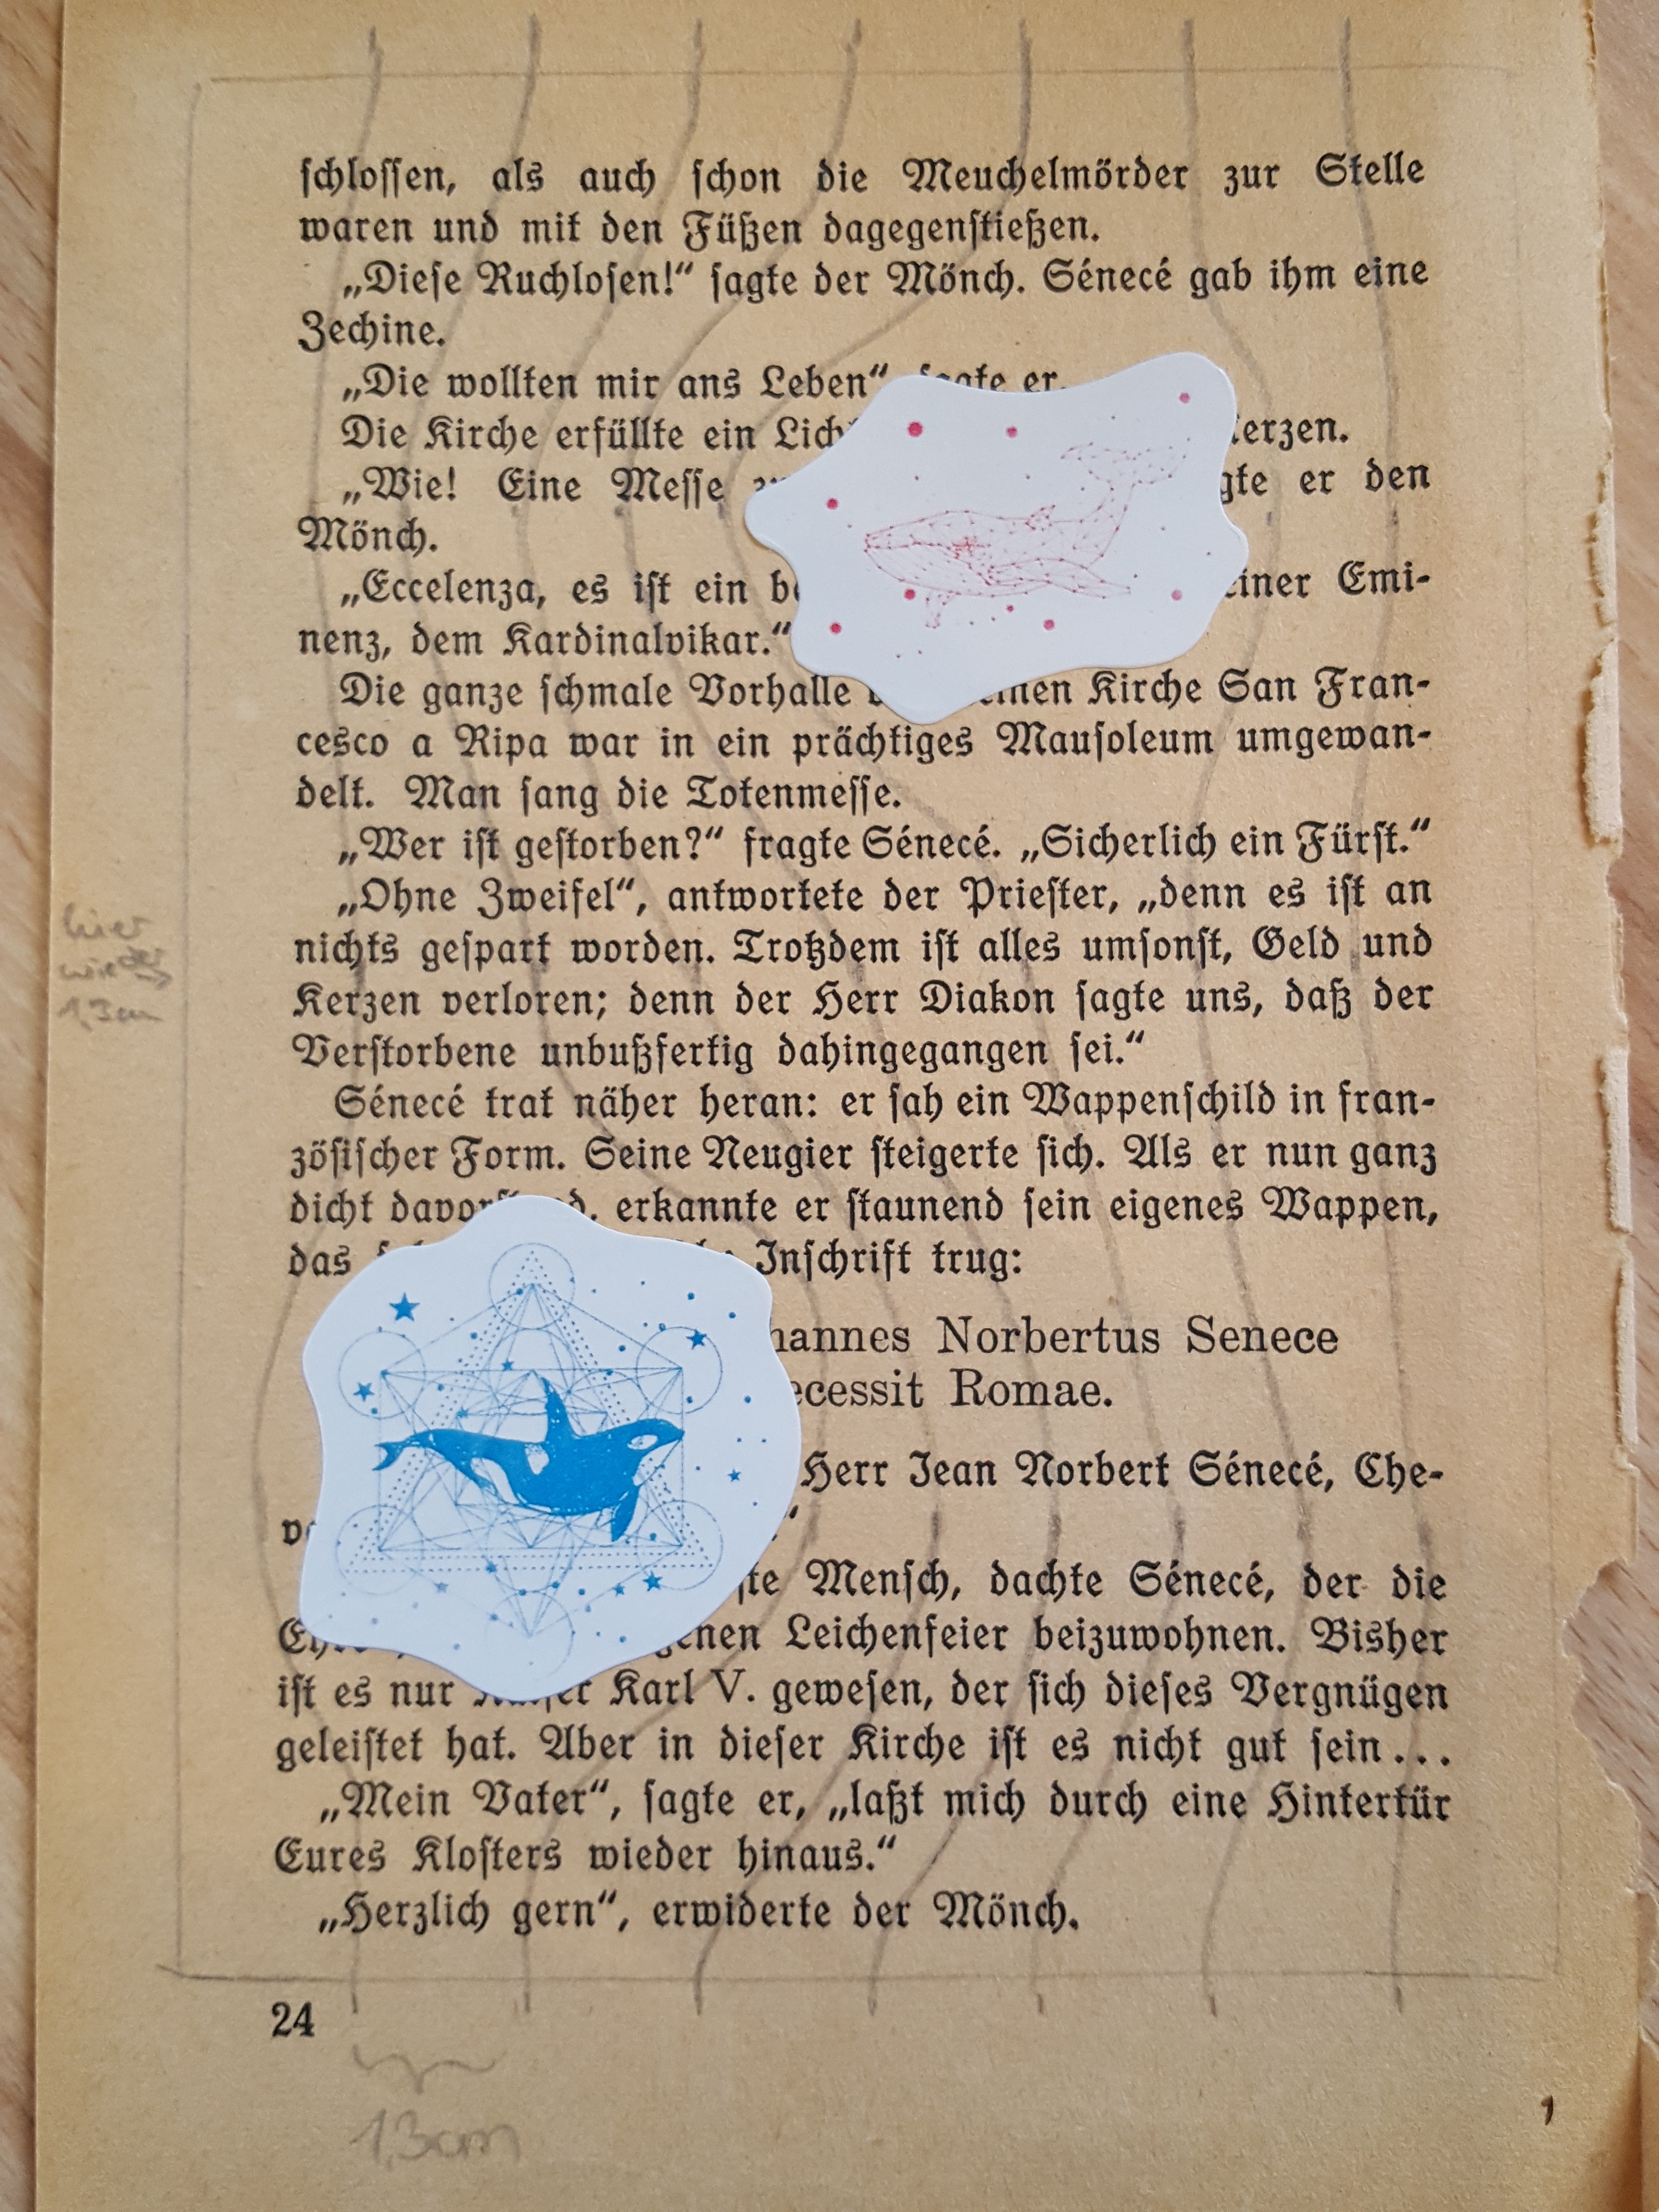 schlossen, als auch schon die Meuchelmörder zur Stelle
waren und mit den Füßen dagegenstießen.
„Diese Ruchlosen!“ sagte der Mönch. Sénecé gab ihm eine
Zechine.
„Die wollten mir ans Leben“, sagte er.
Die Kirche erfüllte ein
„Wie! Eine Messe er den
Mönch.
„Eccelenza, es ist ein Emi-
nenz, dem Kardinalvikar.“
Die ganze schmale Vorhalle Kirche San Fran-
cesco a Ripa war in ein prächtiges Mausoleum umgewan-
delt. Man sang die Totenmesse.
„Wer ist gestorben?“ fragte Sénecé. „Sicherlich ein Fürst.“
„Ohne Zweifel“, antwortete der Priester, „denn es ist an
nichts gespart worden. Trotzdem ist alles umsonst, Geld und
Kerzen verloren; denn der Herr Diakon sagte uns, daß der
Verstorbene unbußfertig dahingegangen sei.“
Sénecé trat näher heran: er sah ein Wappenschild in fran-
zösischer Form. Seine Neugier steigerte sich. Als er nun ganz
dicht davorstand, erkannte er staunend sein eigenes Wappen,
das Inschrift trug:
Norbertus Senece
Romae.
Herr Jean Norbert Sénecé, Che-
Mensch, dachte Sénecé, der die
Leichenfeier beizuwohnen. Bisher
ist es nur Kaiser Karl V. gewesen, der sich dieses Vergnügen
geleistet hat. Aber in dieser Kirche ist es nicht gut sein...
„Mein Vater“, sagte er, „laßt mich durch eine Hintertür
Eures Klosters wieder hinaus.“
„Herzlich gern“, erwiderte der Mönch.
24
hier
wieder
1,3cm
1,3cm